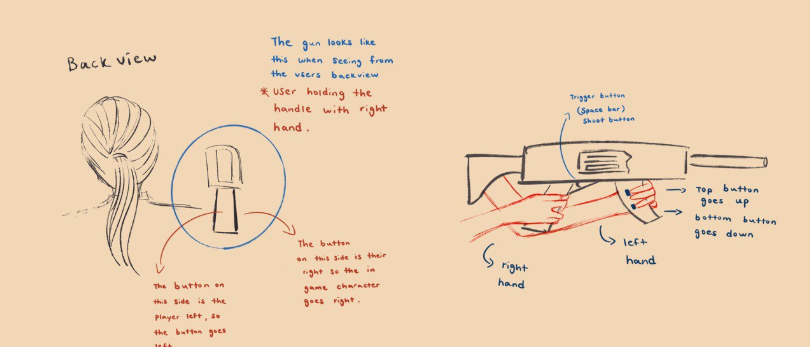 Back view
The gun looks like
this when seeing from
the users backview
* User holding the
handle with right
hand.
The button on
this side is the
player left, so
the button goes
left
The button
on this side is their
right so the in
game character
goes right.
Trigger button
(Space bar)
Shoot button
Top button
goes up
bottom button
goes down
left
hand
right
hand